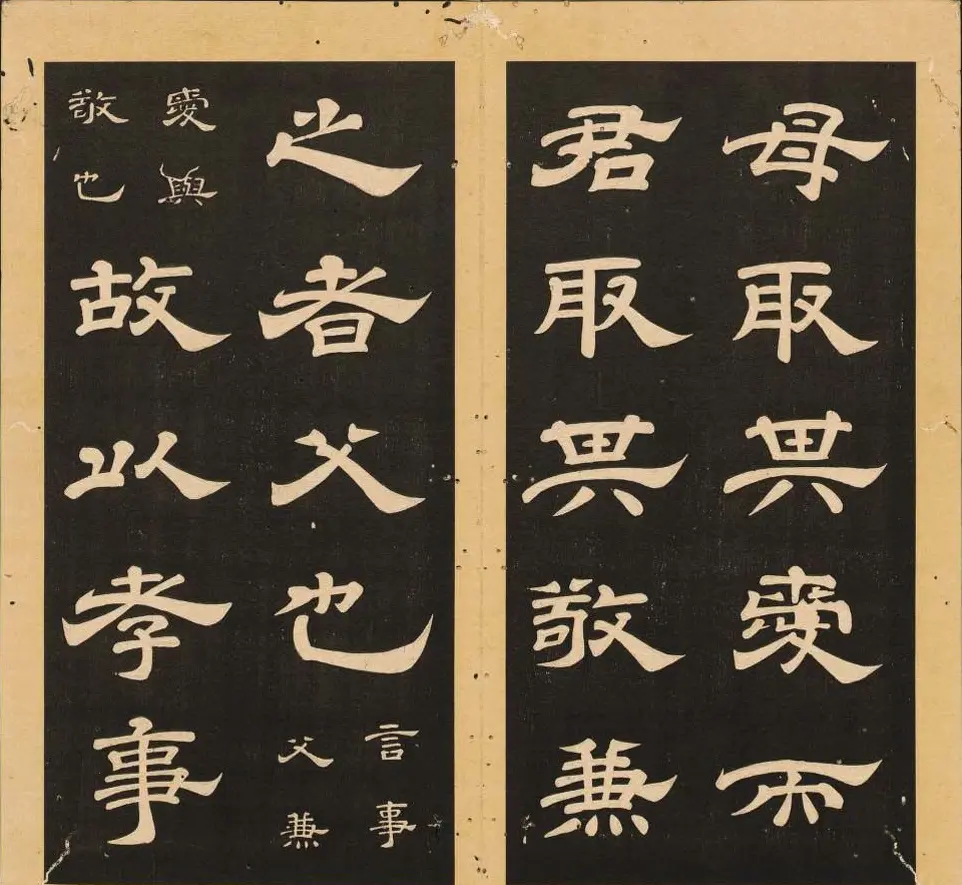 母取其愛而
君取其敬兼
之者父也言事父兼
愛與敬也故以孝事